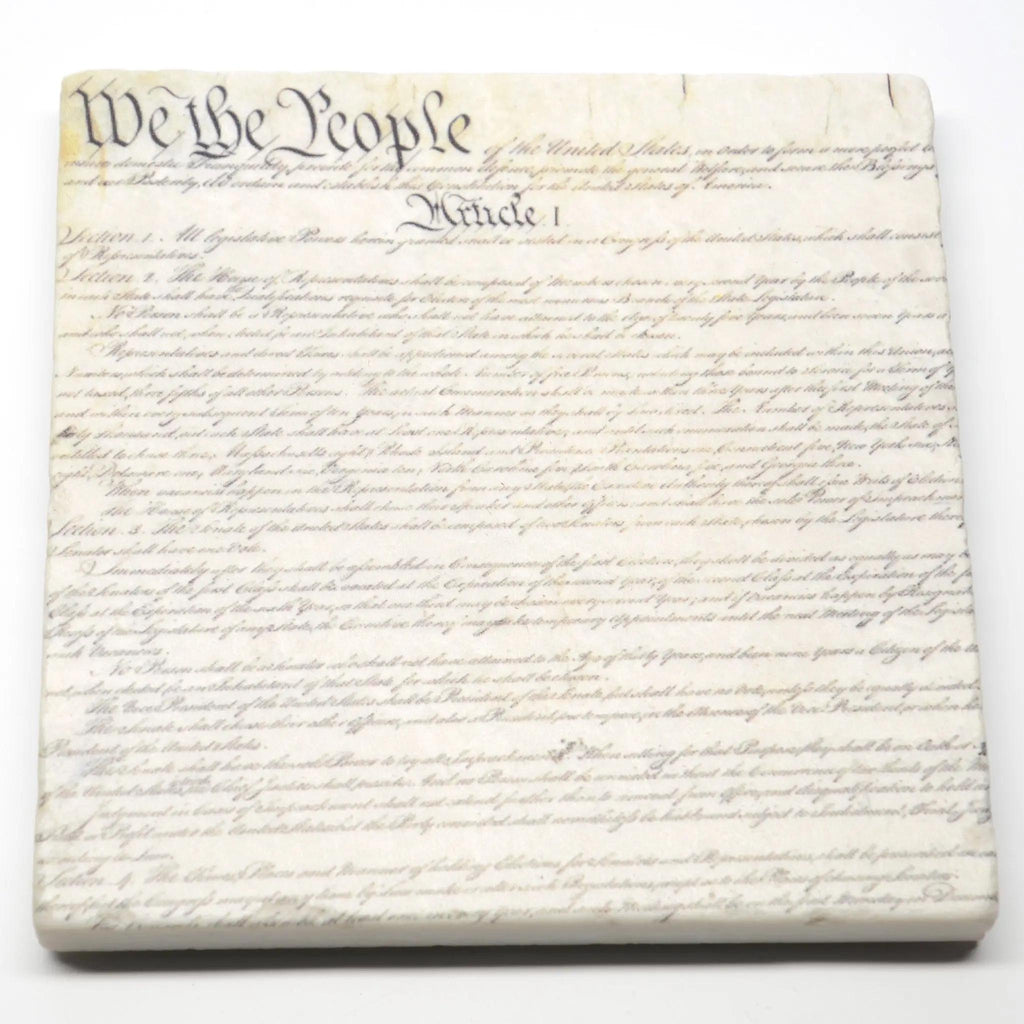 We the People of the United States, in Order to form a more perfect
insure domestic Tranquility, provide for the common defence, promote the general Welfare, and secure the Blessings
and our Posterity, do ordain and establish this Constitution for the United States of America.
Article I.
Section 1. All legislative Powers herein granted shall be vested in a Congress of the United States, which shall consist
of Representatives.
Section 2. The House of Representatives shall be composed of Members chosen every second Year by the People of the
in each State shall have the Qualifications requisite for Electors of the most numerous Branch of the State Legislature.
No Person shall be a Representative who shall not have attained to the Age of twenty five Years, and been seven Years a
and who shall not, when elected, be an Inhabitant of that State in which he shall be chosen.
Representatives and direct Taxes shall be apportioned among the several States which may be included within this Union,
Numbers, which shall be determined by adding to the whole Number of free Persons, including those bound to Service for a Term of
not taxed, three fifths of all other Persons. The actual Enumeration shall be made within three Years after the first Meeting of the
and within every subsequent Term of ten Years, in such Manner as they shall by Law direct. The Number of Representatives
thirty Thousand, but each State shall have at Least one Representative; and until such enumeration shall be made, the State of
entitled to chuse three, Massachusetts eight, Rhode Island and Providence Plantations one, Connecticut five, New York six, New
eight, Delaware one, Maryland six, Virginia ten, North Carolina five, South Carolina five, and Georgia three.
When vacancies happen in the Representation from any State, the Executive Authority thereof shall issue Writs of Election
the House of Representatives shall chuse their Speaker and other Officers; and shall have the sole Power of Impeachment.
Section 3. The Senate of the United States shall be composed of two Senators from each State, chosen by the Legislature
Senator shall have one Vote.
Immediately after they shall be assembled in Consequence of the first Election, they shall be divided as equally as may
of the Senators of the first Class shall be vacated at the Expiration of the second Year, of the second Class at the Expiration of the
Class at the Expiration of the sixth Year, so that one third may be chosen every second Year; and if Vacancies happen by
Recess of the Legislature of any State, the Executive thereof may make temporary Appointments until the next Meeting of the
such Vacancies.
No Person shall be a Senator who shall not have attained to the Age of thirty Years, and been nine Years a Citizen of the
and who shall not, when elected, be an Inhabitant of that State for which he shall be chosen.
The Vice President of the United States shall be President of the Senate, but shall have no Vote, unless they be equally divided.
The Senate shall chuse their other Officers, and also a President pro tempore, in the Absence of the Vice President, or when he
President of the United States.
The Senate shall have the sole Power to try all Impeachments. When sitting for that Purpose, they shall be on Oath or
of the United States the Chief Justice shall preside: And no Person shall be convicted without the Concurrence of two thirds of the
Judgment in Cases of Impeachment shall not extend further than to removal from Office, and disqualification to hold
Trust or Profit under the United States: but the Party convicted shall nevertheless be liable and subject to Indictment, Trial,
according to Law.
Section 4. The Times, Places and Manner of holding Elections for Senators and Representatives, shall be prescribed
the Congress may at any time by Law make or alter such Regulations, except as to the Places of chusing Senators.
at least once in every Year, and such Meeting shall be on the first Monday in